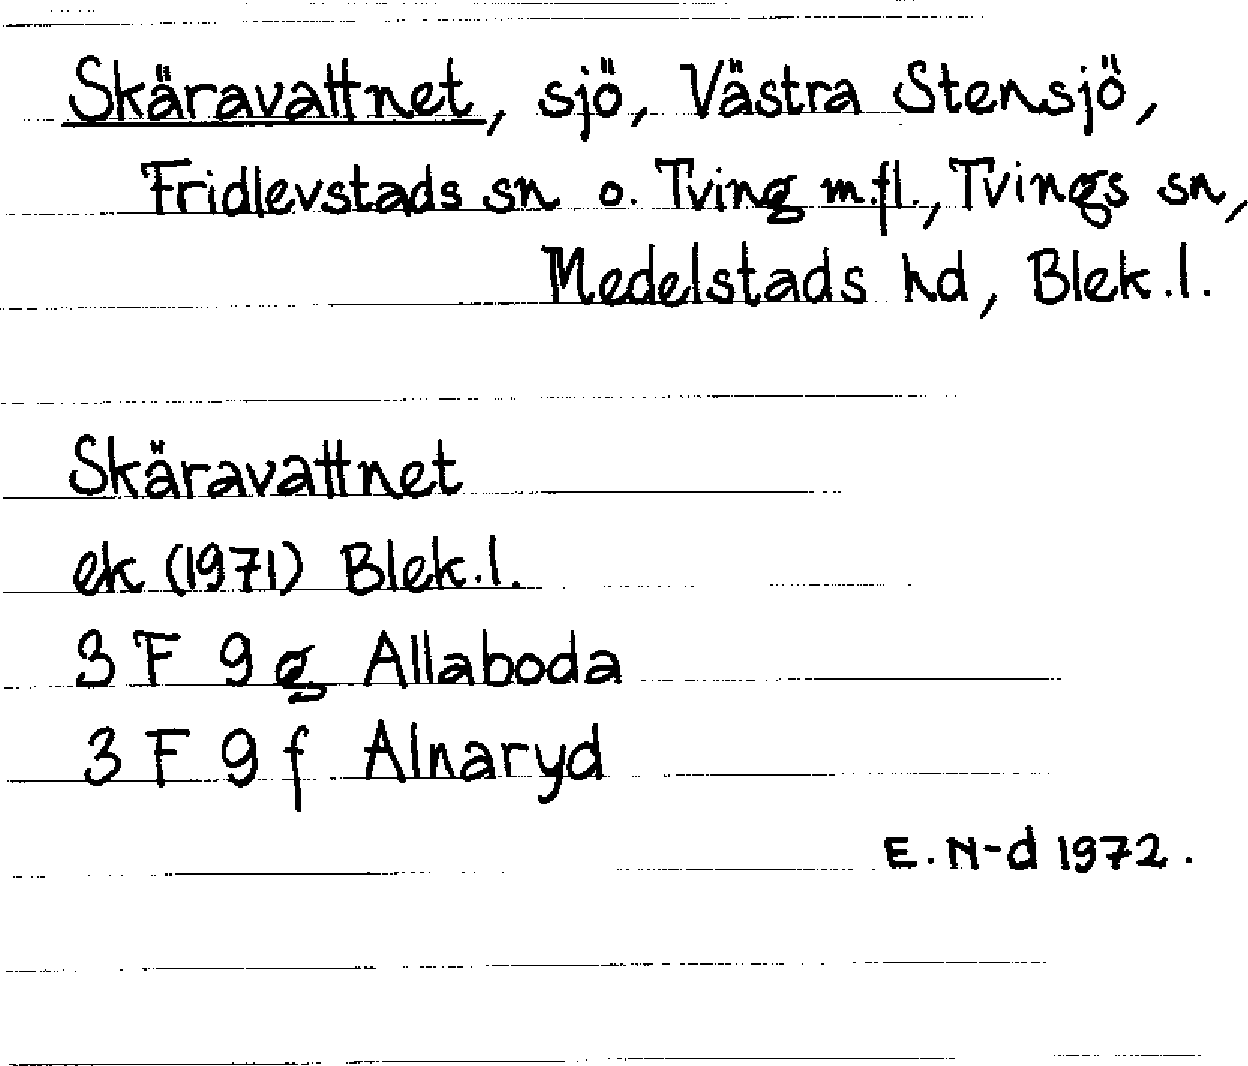 Skäravattnet, sjö, Västra Stensjö,
Fridlevstads sn o. Tving m.fl., Tvings sn,
Medelstads hd, Blek.l.
Skäravattnet
ek (1971) Blek.l.
3 F 9 g Allaboda
3 F 9 f Alnaryd
E. N-d 1972.